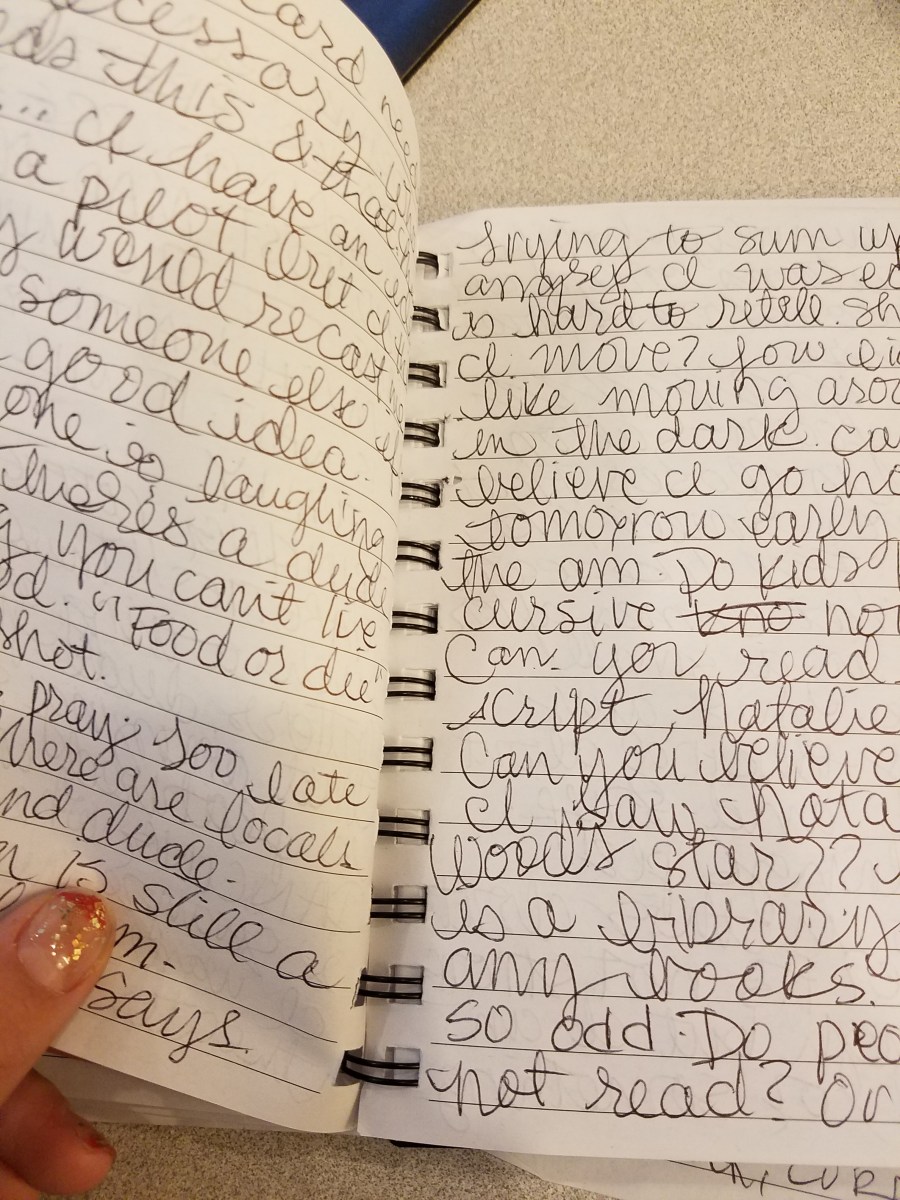 ard
cessary
ds this & that
... I have an
a pilot but I
would recast
someone else
good idea.
one is laughing
There's a dude
you can't live
d. "Food or die"
shot.
pray. Too late
here are locals
nd dude.
is still a
m.
says.
Trying to sum up
angsty I was
is hard to retell. Sh
I move? You
like moving
in the dark. Ca
believe I go ho
tomorrow early
the am. Do kids
cursive kno no
Can you read
script, Natalie
Can you believe
I say Nata
Woods star??
is a library
any books.
so odd. Do peo
not read? Or